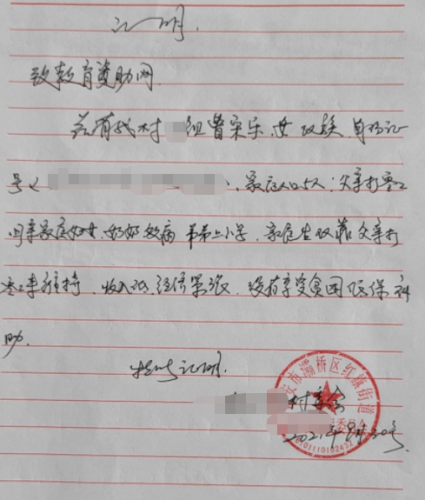 证明.
致教育资助网
兹有我村 组曹 乐,女 汉族 身份证
号( ),家庭人口5人:父亲打零工
母亲家庭妇女.奶奶 病 弟弟上小学.家庭生 靠父亲打
零工来维持.收入 低,经济 ,没有享受贫困 保补
助.
特此证明.
村委会
2021年9月30号
安市灞桥区红旗街道
委员会